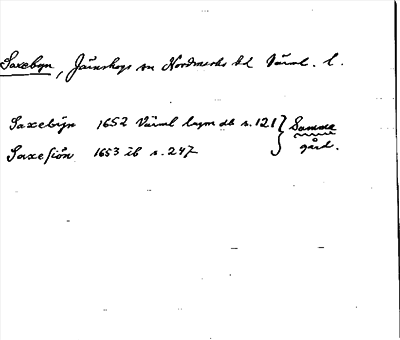 Saxebyn, Järnskogs sn Nordmarks hd Värml. l.
Saxebÿn 1652 Värml lagm db s. 121 } Samma
Saxesiön 1653 ib s. 247 gård.